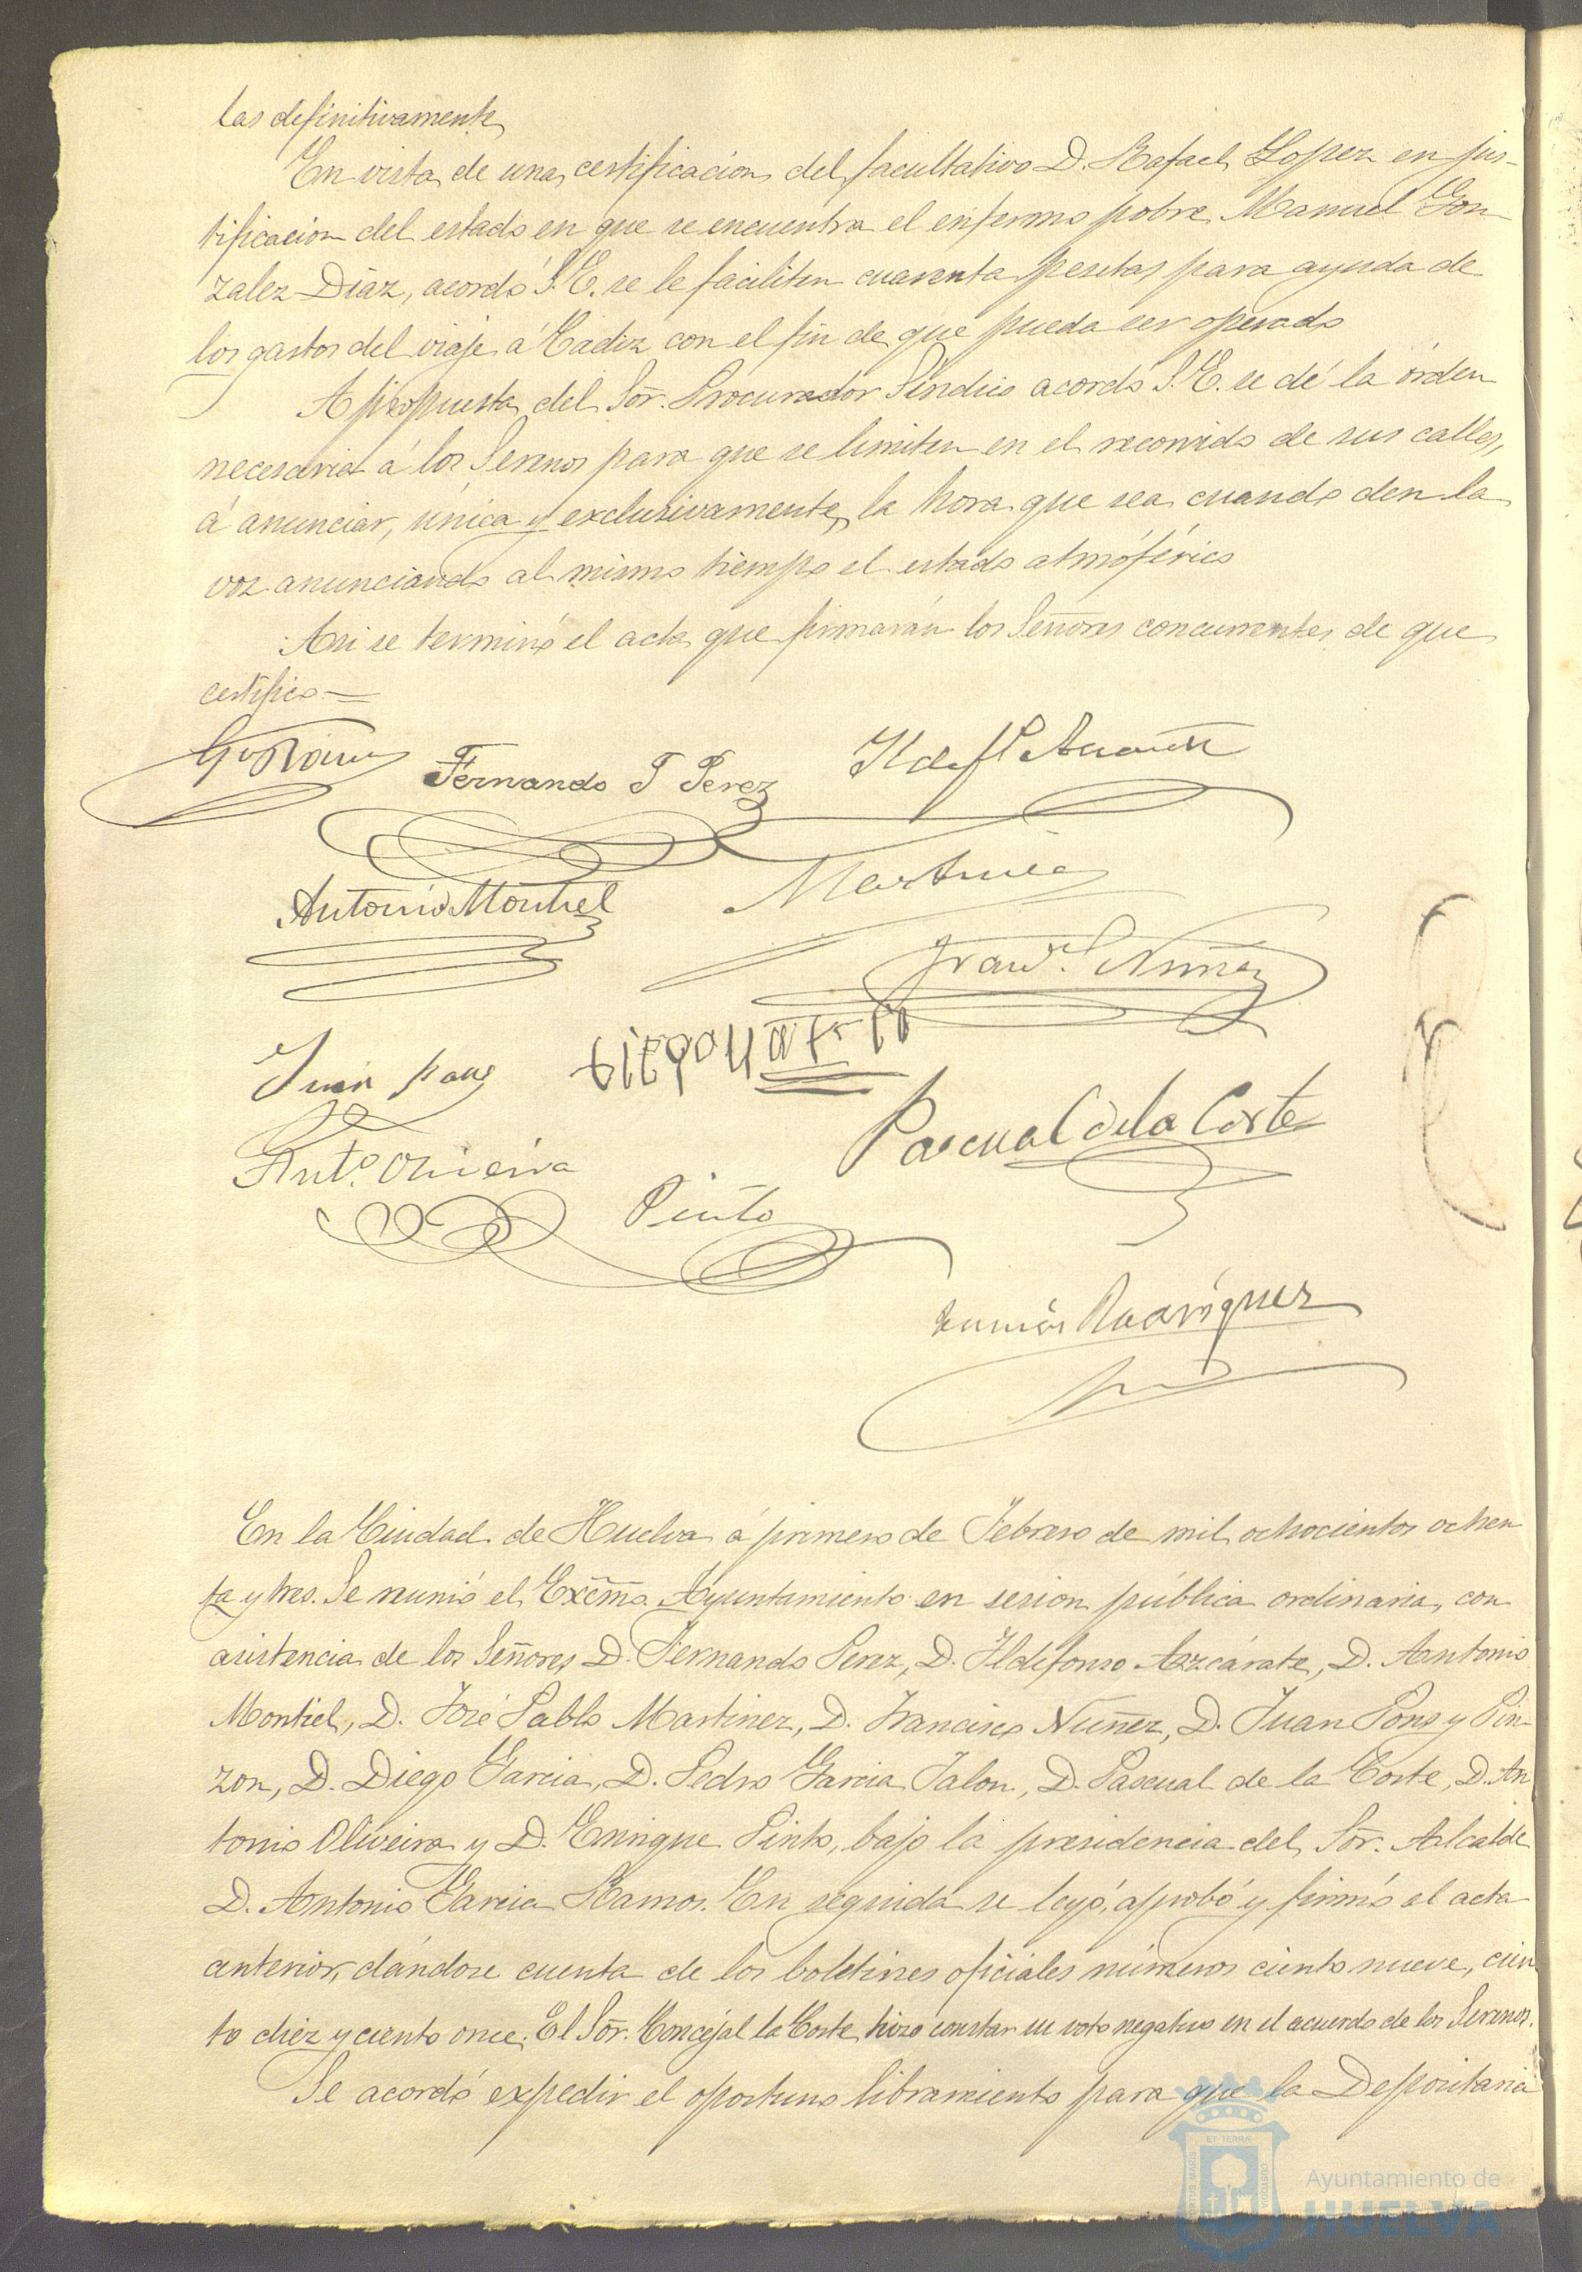 las definitivamente
En vista de una certificacion del facultativo D. Rafael Lopez en jus-
tificacion del estado en que se encuentra el enfermo pobre Manuel Gon
zalez Diaz, acordó S.E. se le faciliten cuarenta pesetas para ayuda de
los gastos del viaje á Cadiz con el fin de que pueda ser operado
A propuesta del Sor. Procurador Síndico acordó S.E. se dé la órden
necesaria á los Serenos para que se limiten en el recorrido de sus calles,
á anunciar, única y exclusivamente, la hora que sea cuando den la
voz anunciando al mismo tiempo el estado atmósférico
Asi se terminó el acta que firmarán los Señores concurrentes de que
certifico =
Fernando T Perez
Antonio Montiel
Martinez
Franco. Nuñez
Juan Pons
Pascual de la Corte
Anto. Oliveira
Pinto
Rodriguez
En la Ciudad de Huelva á primero de Febrero de mil ochocientos ochen
ta y tres. Se reunió el Excmo. Ayuntamiento en sesion pública ordinaria, con
asistencia de los Señores D. Fernando Perez, D. Ildefonso Azcárate, D. Antonio
Montiel, D. José Pablo Martinez, D. Francisco Nuñez, D. Juan Pons y Pin-
zon, D. Diego Garcia, D. Pedro Garcia Jalon, D. Pascual de la Corte, D. An
tonio Oliveira y D. Enrique Pinto, bajo la presidencia del Sor. Alcalde
D. Antonio Garcia Ramos. En seguida se leyó, aprobó y firmó el acta
anterior, dándose cuenta de los boletines oficiales números ciento nueve, cien
to diez y ciento once. El Sor. Concejal la Corte, hizo constar su voto negativo en el acuerdo de los Serenos.
Se acordó expedir el oportuno libramiento para que la Depositaria
Ayuntamiento de
HUELVA